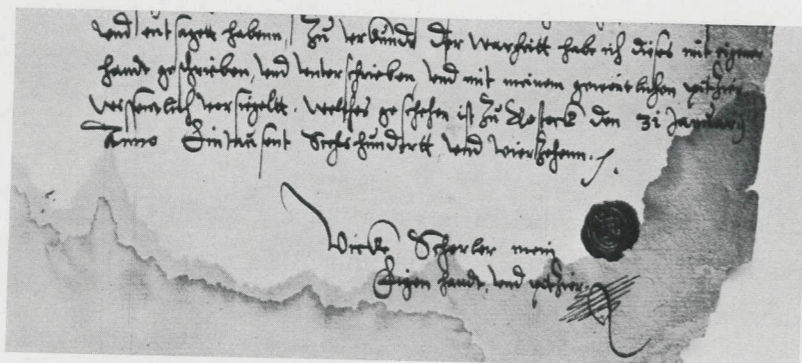 vnd entsagett habenn, Zu vrkundt der warheitt habe ich dieses mit eigener
handt geschrieben, vnd vnterschrieben vnd mit meinem gewontlichen pitzschier
versiegeltt. welches geschehen ist Zu Rostock den 31 January
Anno Eintausent Sechshundertt vnd vierZehenn.
Vicke Scherler mein
Eigen handt, vnd pitzschier.